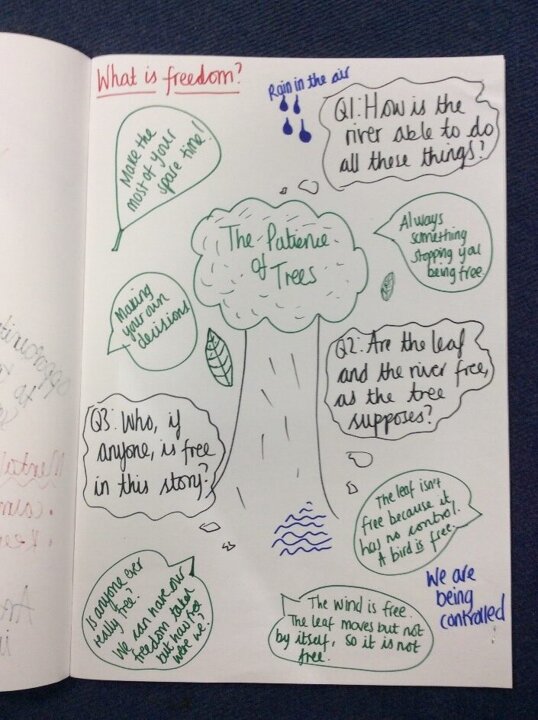 What is freedom?
Rain in the air
Q1: How is the
river able to do
all these things?
Make the
most of your
spare time!
The Patience
of Trees
Always
something
stopping you
being free.
Making
your own
decisions
Q2: Are the leaf
and the river free,
as the tree
supposes?
Q3: Who, if
anyone, is free
in this story?
The leaf isn't
free because it
has no control.
A bird is free.
We are
being
controlled
Is anyone ever
really free?
We can have our
freedom taken
but how free
were we?
The wind is free.
The leaf moves but not
by itself, so it is not
free.